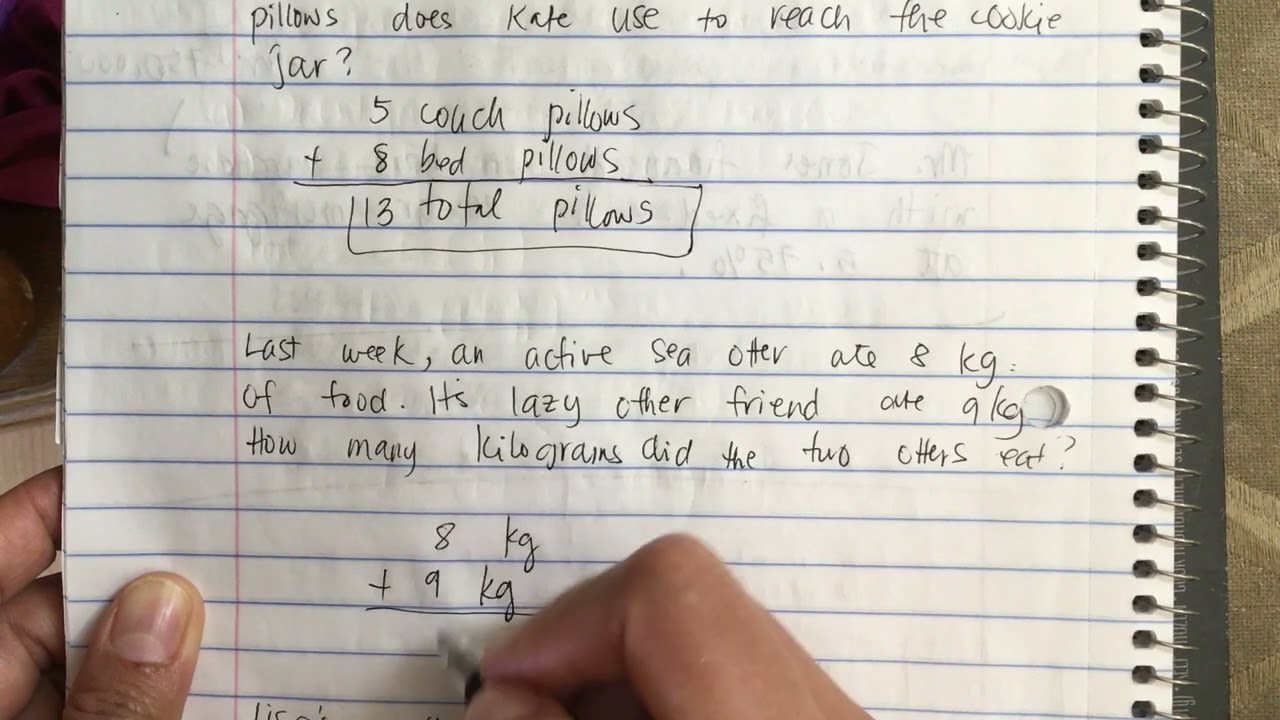 pillows does Kate use to reach the cookie
jar?
5 couch pillows
+ 8 bed pillows
13 total pillows
Last week, an active sea otter ate 8 kg.
of food. It's lazy other friend ate 9kg
How many kilograms did the two otters eat?
8 kg
+ 9 kg